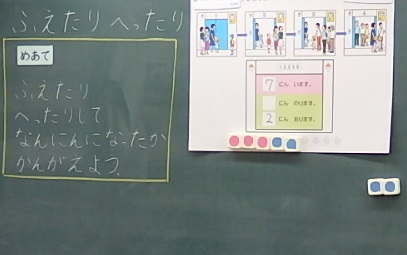 ふえたり へったり
めあて
ふえたり
へったりして
なんにんになったか
かんがえよう。
7 にん います。
にん のります。
2 にん おります。